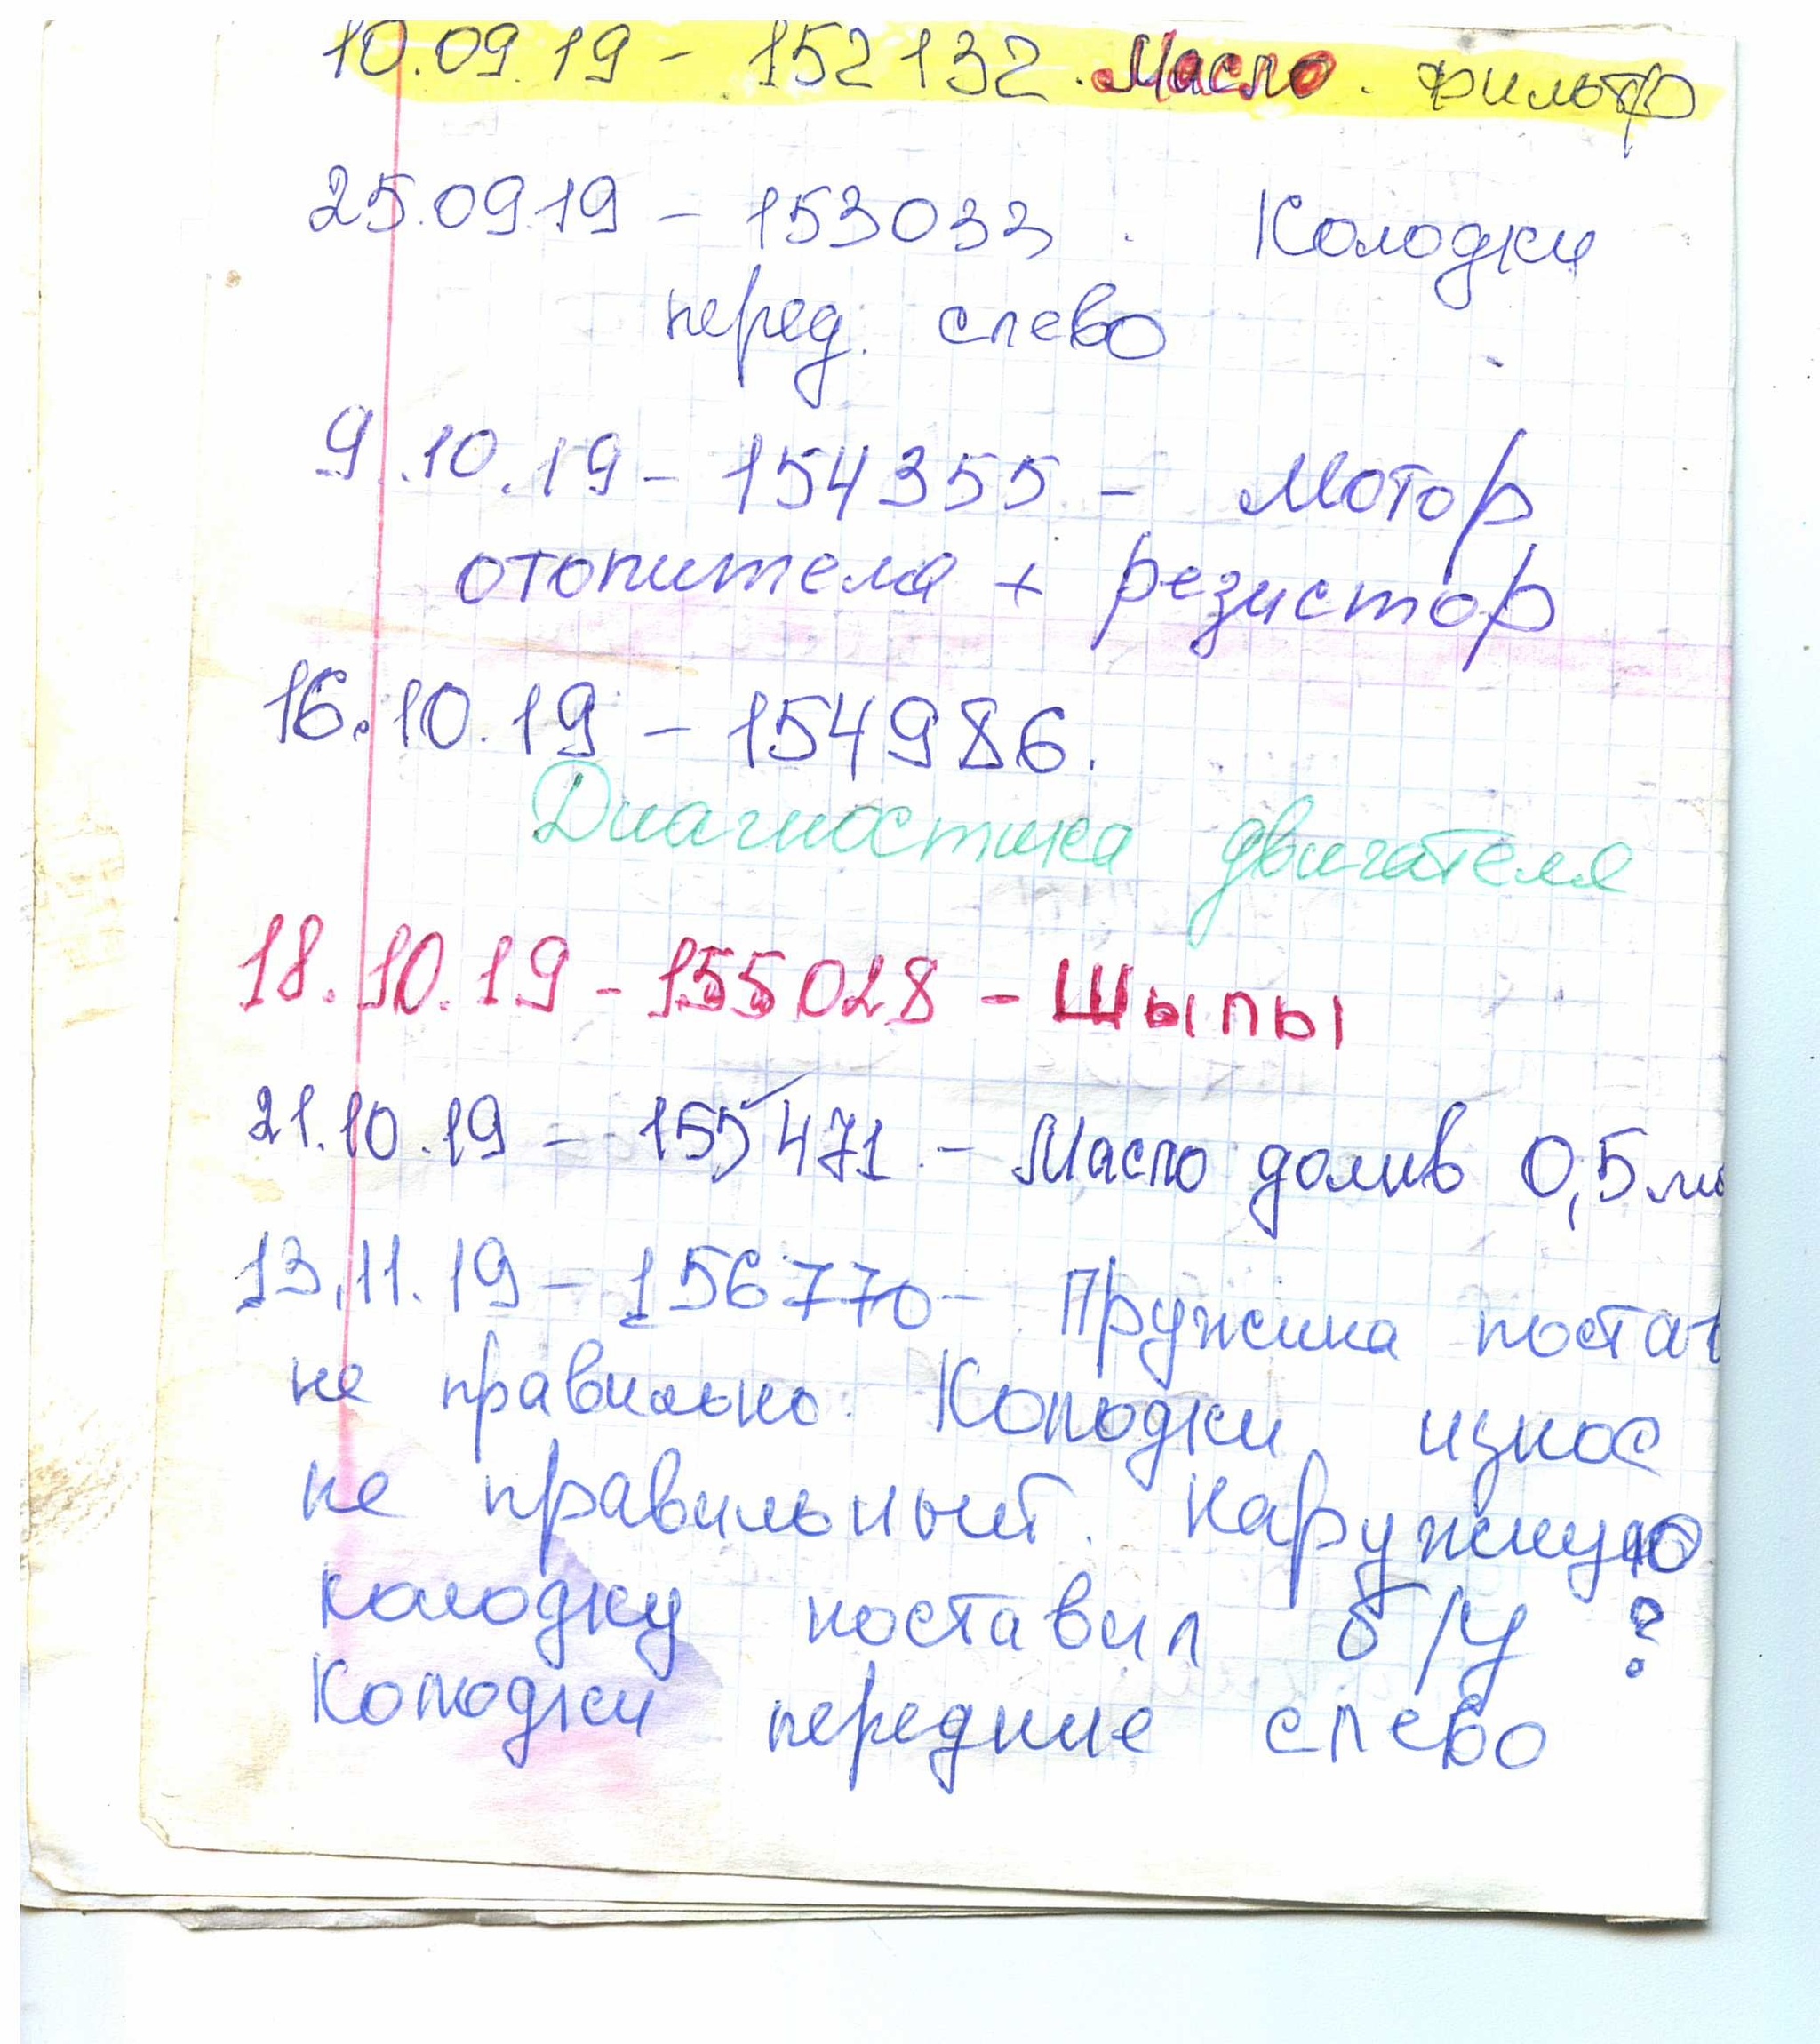 10.09.19 - 152132. Масло. Фильтр
25.09.19 - 153033. Колодки
перед. слево
9.10.19 - 154355 - Мотор
отопителя + резистор
16.10.19 - 154986.
Диагностика двигателя
18.10.19 - 155028 - Шыпы
21.10.19 - 155471 - Масло долив 0,5 ли
13.11.19 - 156770 - Пружина постав
не правильно. Колодки износ
не правильный. Наружную
колодку поставил б/у ?
Колодки передние слево